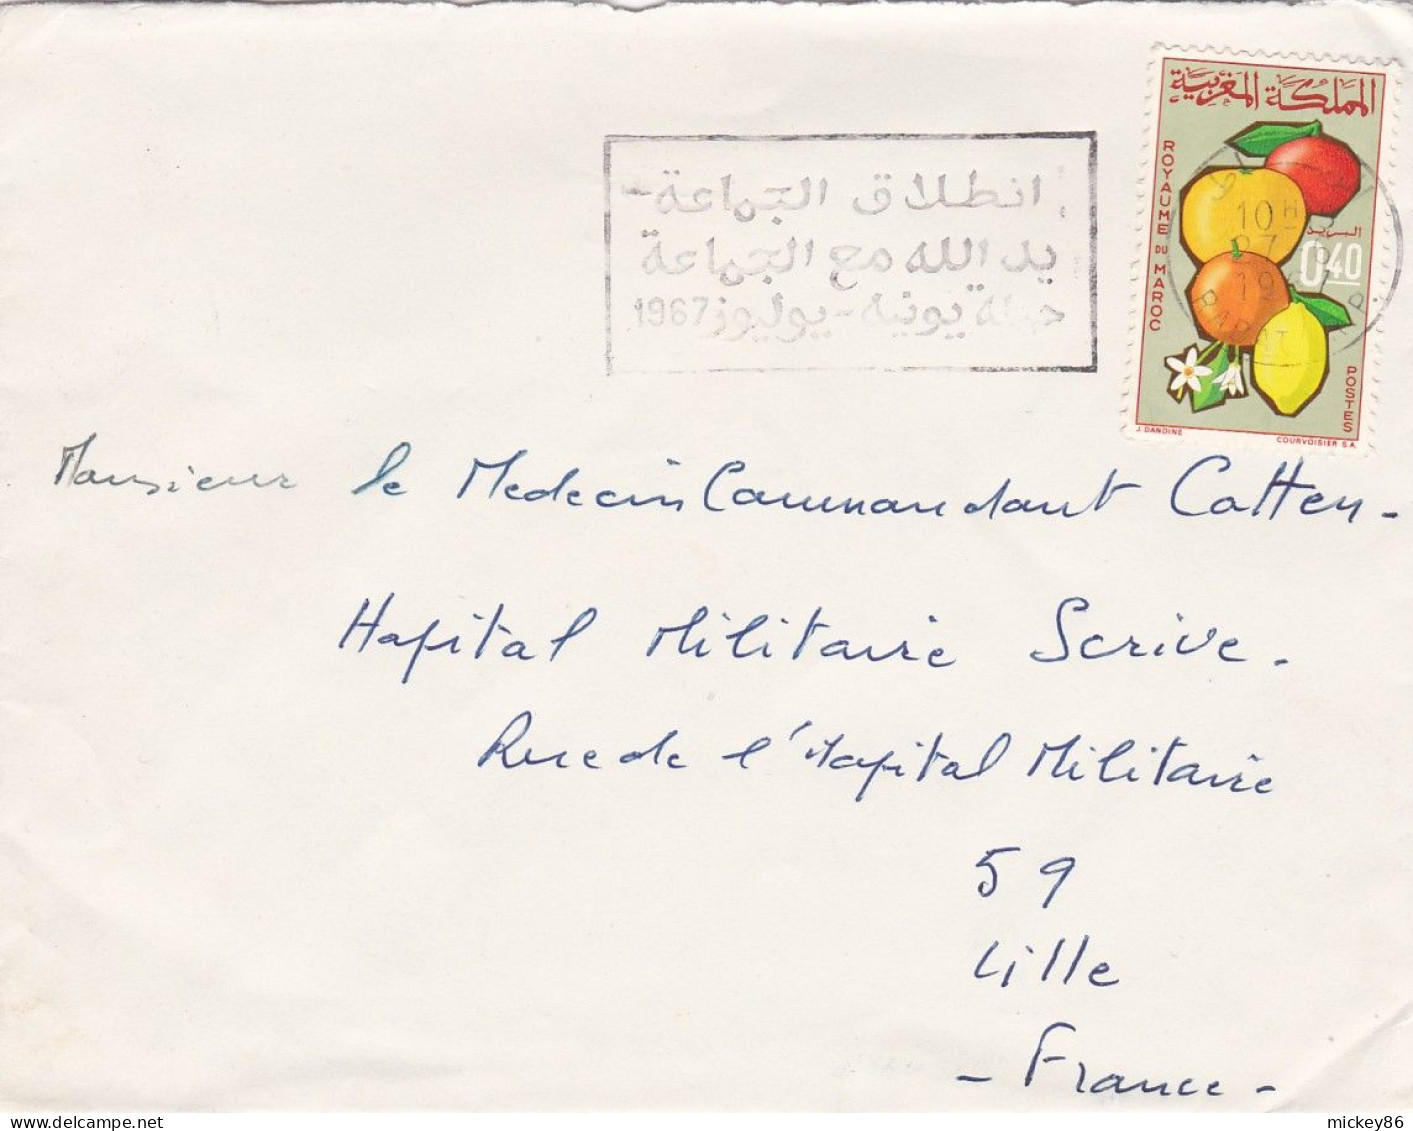 المملكة المغربية
ROYAUME DU MAROC
البريد
0,40
POSTES
J. DANDINE
COURVOISIER S.A.
10H
1967
RABAT
انطلاق الجماعة -
يد الله مع الجماعة
حملة يونيه - يوليوز 1967
Monsieur le Medecin Commandant Cotten -
Hopital Militaire Scrive -
Rue de l'Hopital Militaire
59
Lille
- France -
mickey86